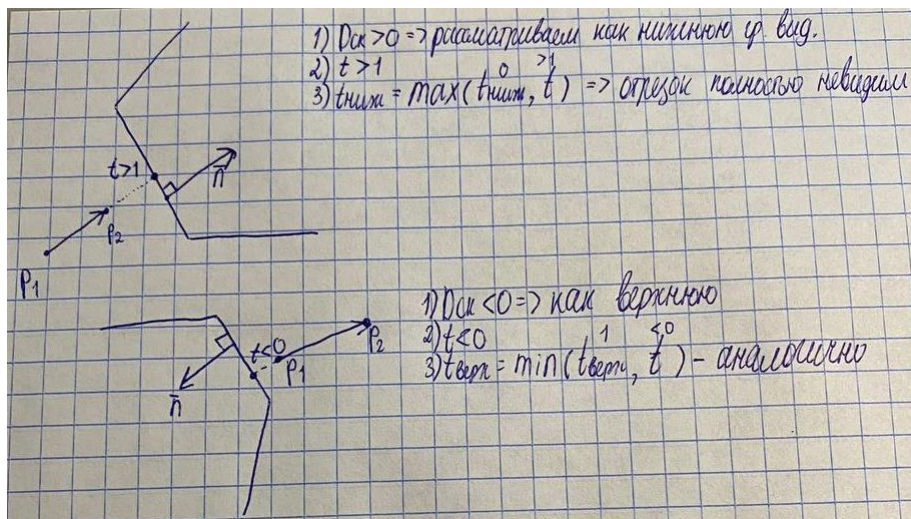 1) Dск>0 => рассматриваем как нижнюю гр. вид.
2) t>1
3) tниж = max(tниж, t) => отрезок полностью невидим
0 >1
t>1
n̄
P2
P1
1) Dск<0 => как верхнюю
2) t<0
3) tверх = min(tверх, t) - аналогично
1 <0
t<0
P2
P1
n̄